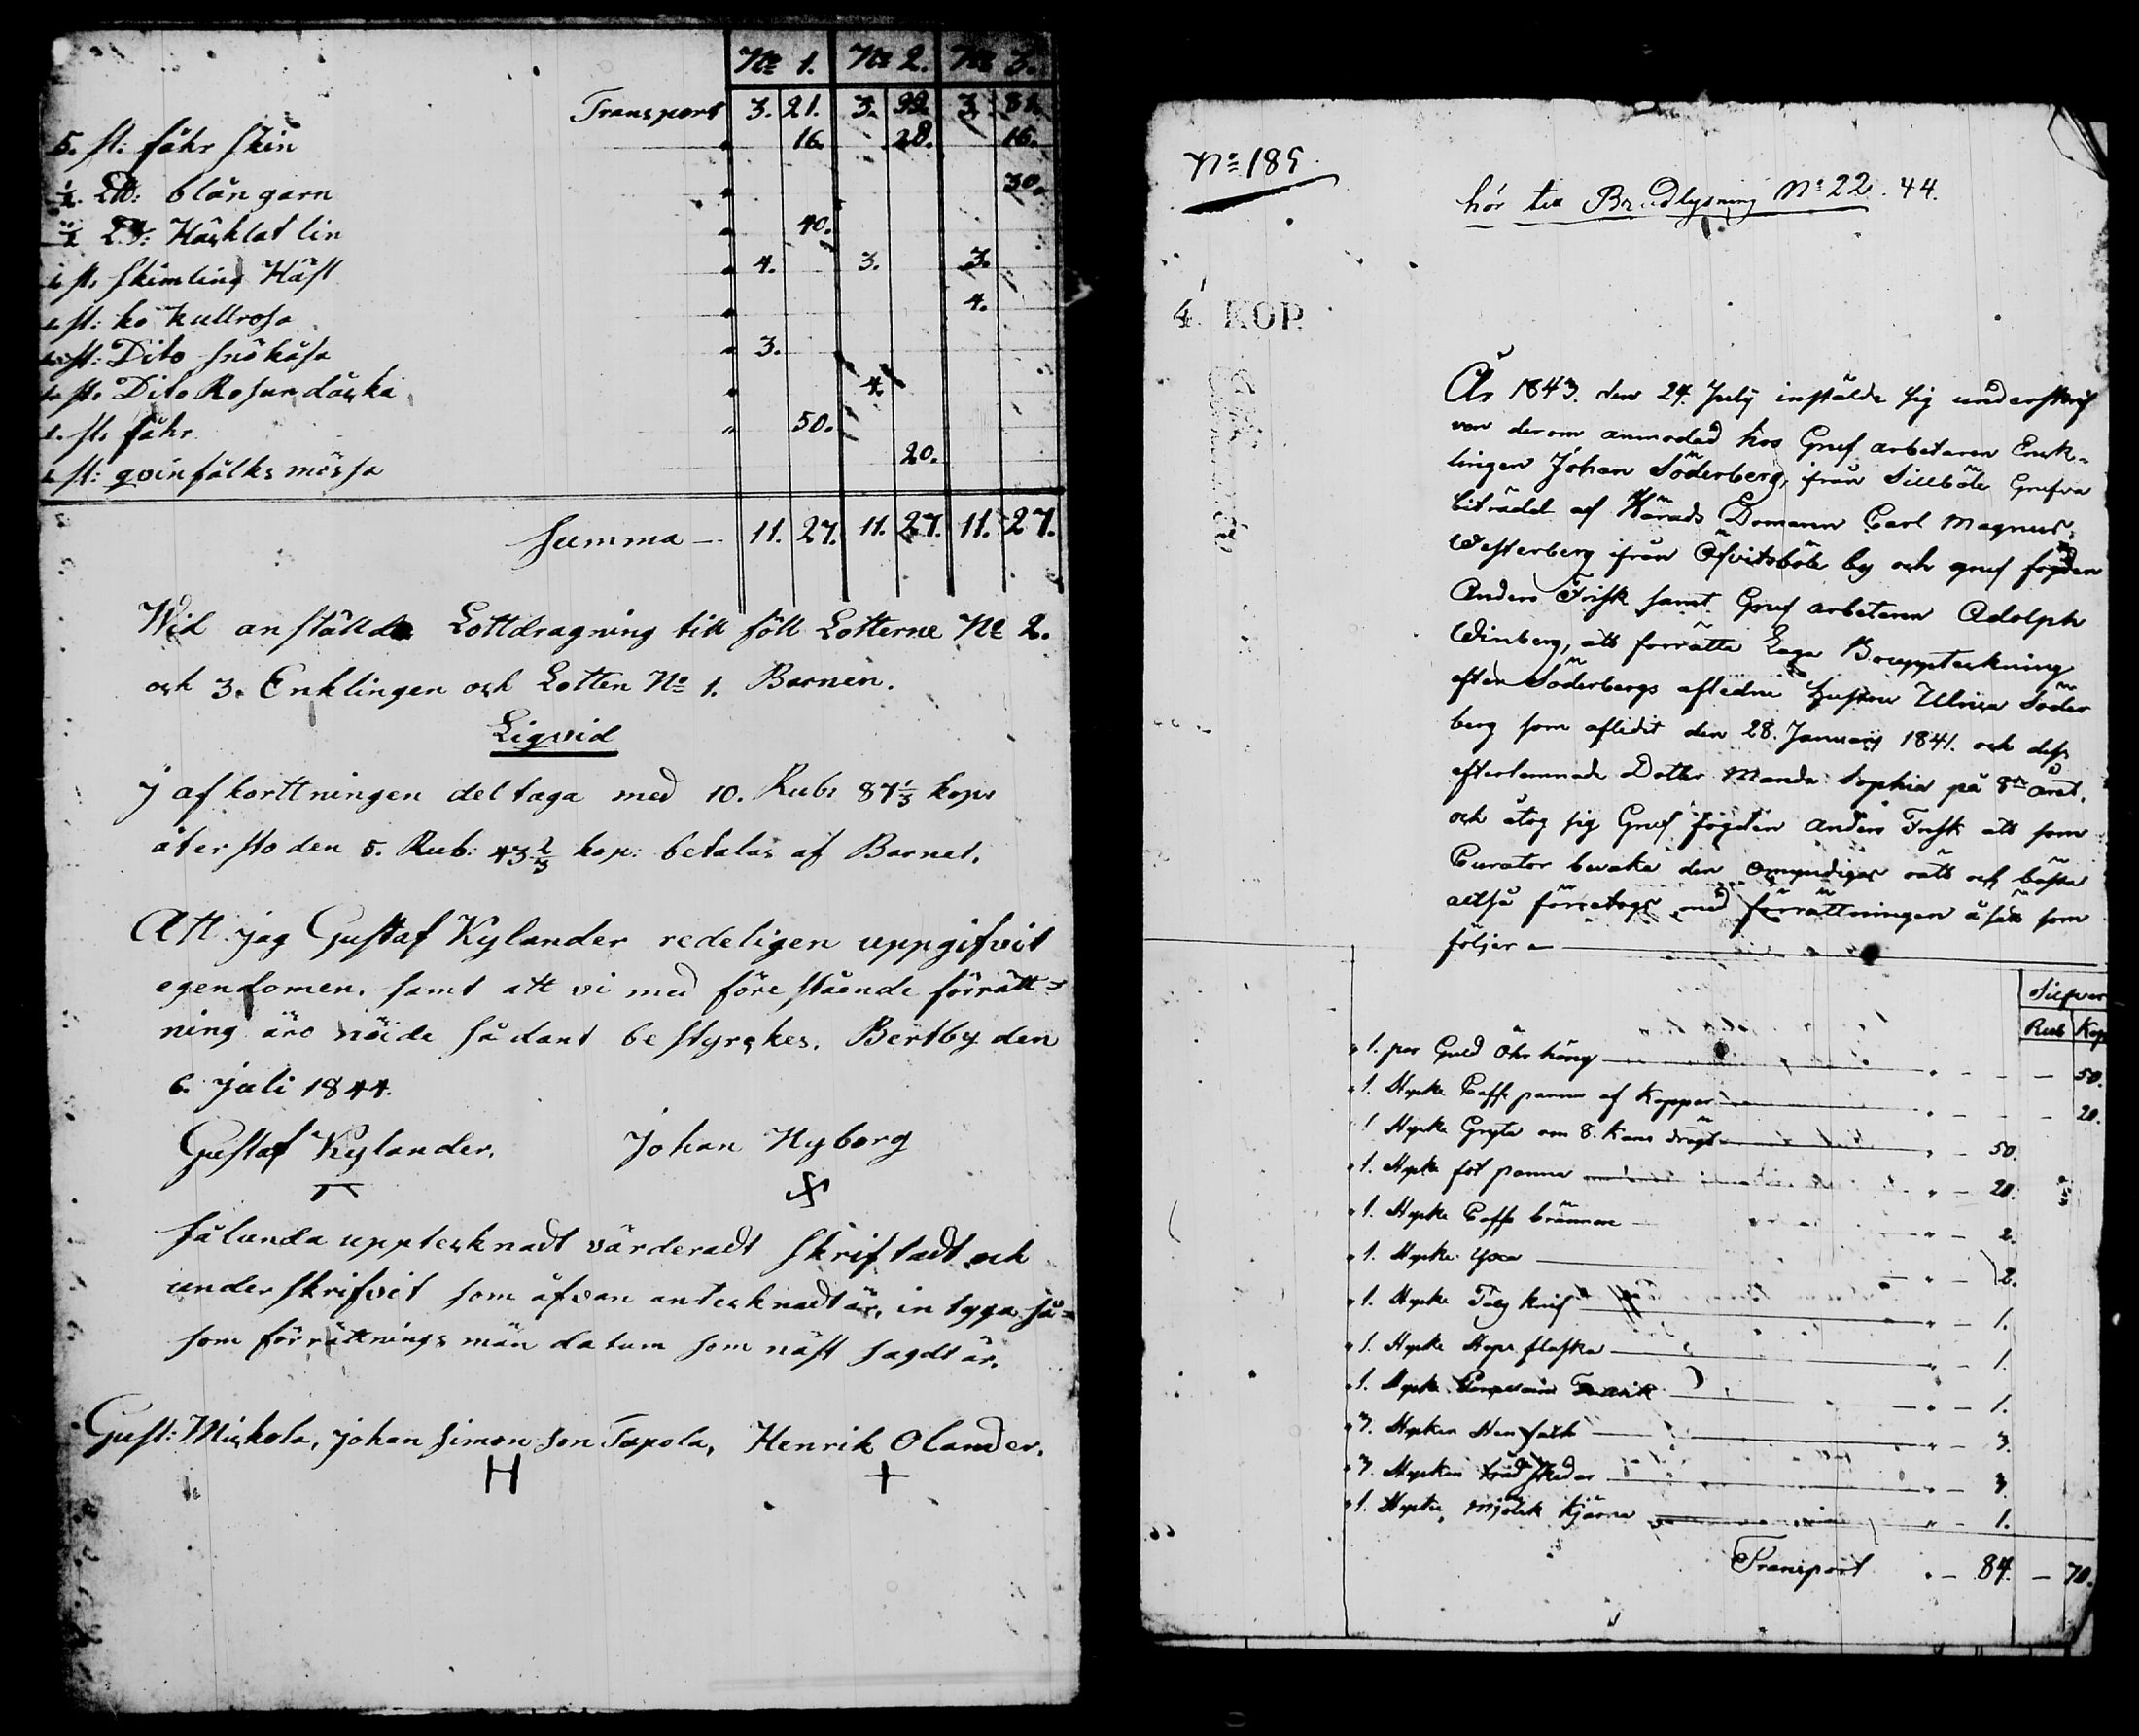 No 1. No 2. No 3.
Transport 3. 21. 3. 32. 3. 81.
5. st: fåhr skin " 16. 28. 16.
½. LW: blån garn " 30.
½ LW: Häcklat lin " 40.
1. st. Skimling Häst " 4. 3. 3.
1. st: ko Kullrosa " 4.
1. st: Dito Snökåsa " 3.
1. st. Dito Rosendäcka " 4.
1. st. fåhr " 50.
1. st: qvinfålks mössa 20.
Summa — 11. 27. 11. 27. 11. 27.
Wid anstälde Lottdragning till föll Lotterne No 2.
och 3. Enklingen och Lotten No 1. Barnen.
Liqvid
J afkorttningen deltaga med 10. Rub: 87⅓ kop:
återstoden 5. Rub: 43⅔ kop: betalas af Barnet.
Att jag Gustaf Kylander redeligen uppgifvit
egendomen, samt att vi med förestående förrätt=
ning äro nöide sådant bestyrckes. Bertby den
6. juli 1844.
Gustaf Kylander. Johan Nyborg
Sålunda upptecknadt värderadt skriftadt och
underskrifvit som åfvan antecknadt är, intyga så=
som förrättnings män datum som näst sagdt är.
Gust: Mickola, Johan Simon Son Tapola, Henrik Olander.
H +
No 185.
hör till Brudlysning No 22. 44.
4 KOP.
År 1843. den 24. July instälde sig underskrif
van derom anmodad hos Gruf arbetaren Enck-
lingen Johan Söderberg, ifrån Sillböle Grufva
biträdd af Härads Domaren Carl Magnus
Westerberg ifrån Öfvitsböle by och gruf fogden
Anders Frisk samt Gruf arbetaren Adolph
Winberg, att forrätta Laga Bouppteckning
efter Söderbergs afledne hustru Ulrica Söder
berg som aflidit den 28. January 1841. och dess
efterlemnade Dotter Manda Sophia på 8de året.
och åtog sig Gruf fogden Anders Frisk att som
Curator bevaka den omyndigas rätt och bästa
altså företogs med förrättningen åsätt som
följer
Silfver
Rub Kop
" 1. par Guld Öhr häng " — 50.
" 1. Stycke Caffe panna af Koppar " — 20.
1 Stycke Gryta om 8. Kans drygt " — 50.
" 1. Stycke fot panna " — 20.
" 1. Stycke Caffe brännare " — 2.
" 1. Stycke Yxa " — 2.
" 1. Stycke Talj knif " — 1.
" 1. Stycke Stops flaska " — 1.
" 1. Stycke " — 1.
" 3. Stycken Sten fath " — 3.
" 3. Stycken träd skedar " — 3.
" 1. Stycke, mjölk kjärna " — 1.
Transport " — 84. — 70.